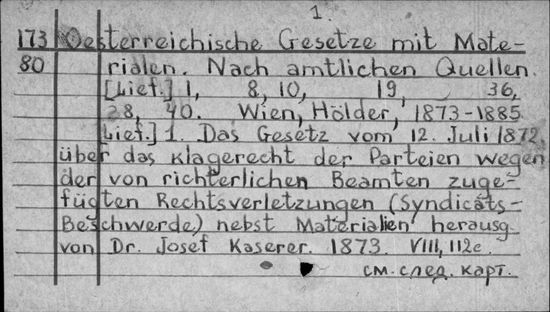 1.
173 Oesterreichische Gesetze mit Mate-
80 rialen. Nach amtlichen Quellen.
[Lief.] 1, 8, 10, 19, 36,
28, 40. Wien, Hölder, 1873-1885
Lief.] 1. Das Gesetz vom 12. Juli 1872
über das klagerecht der Parteien wegen
der von richterlichen Beamten zuge-
fügten Rechtsverletzungen (Syndicats-
Beschwerde) nebst Materialien herausg.
von Dr. Josef Kaserer. 1873. VIII, 112c.
см. след. карт.